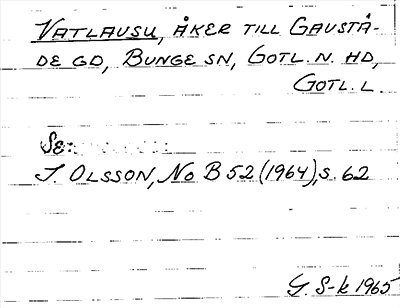 VATLAUSU, ÅKER TILL GAUSTÄ-
DE GD, BUNGE SN, GOTL. N. HD,
GOTL. L.
Se:
I. OLSSON, No B 52 (1964), s. 62
G. S-k 1965